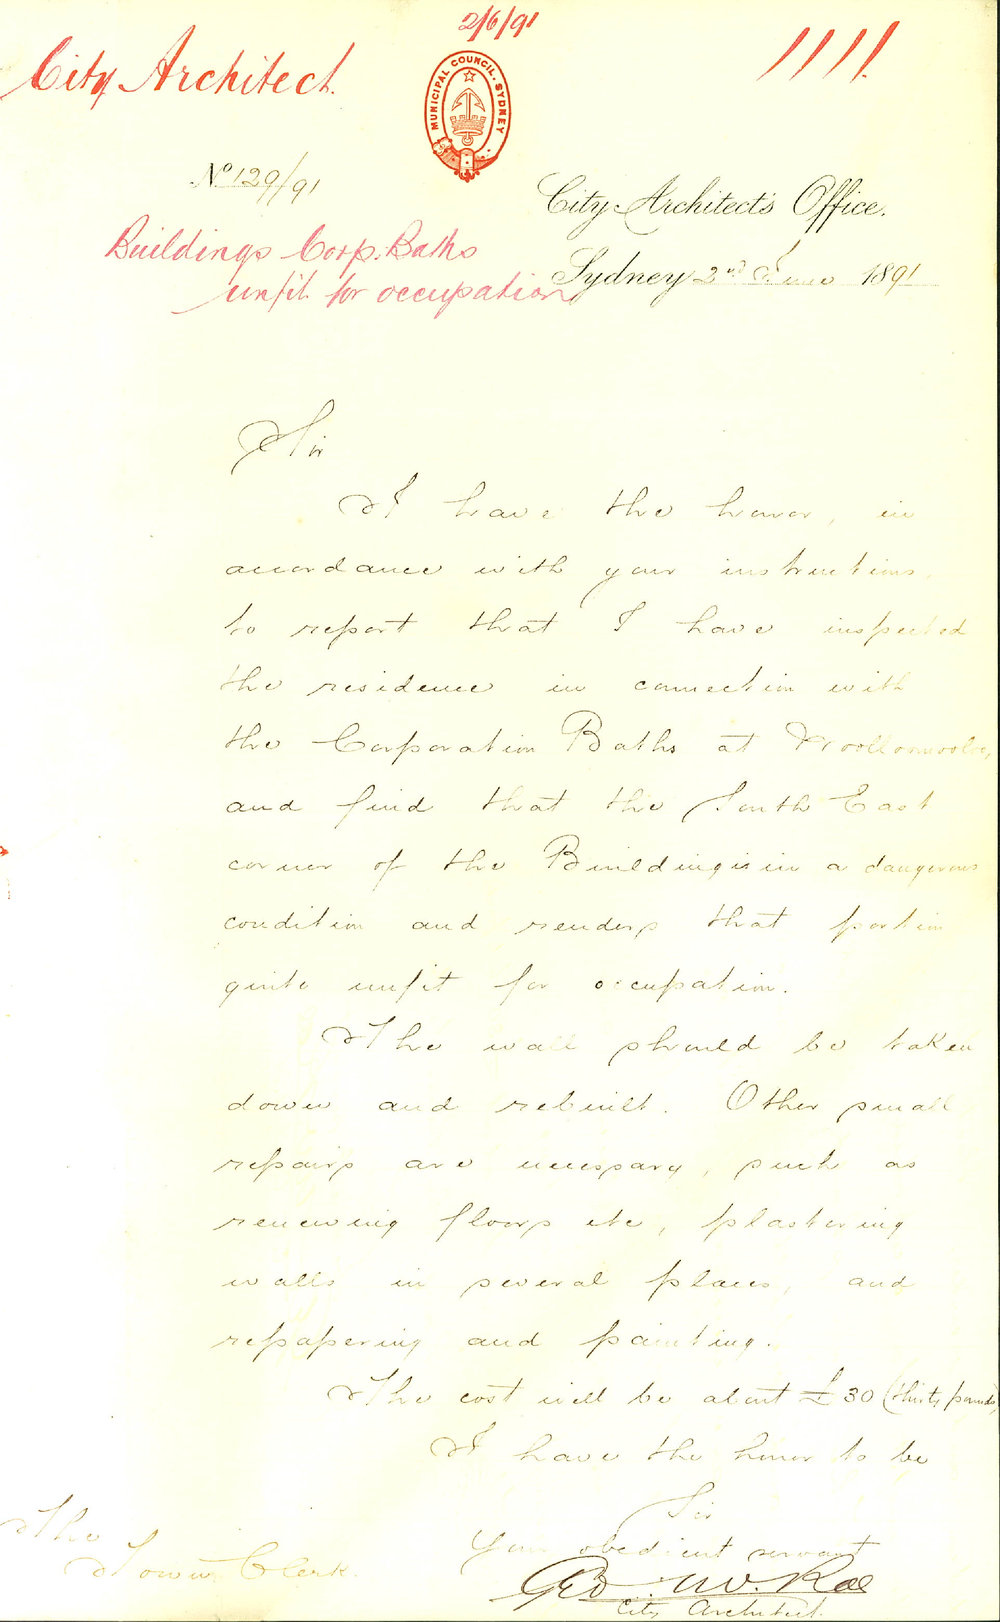 2/6/91
City Architect.
1111.
MUNICIPAL COUNCIL. SYDNEY
No 129/91
City Architect's Office.
Buildings Corp. Baths
unfit for occupation
Sydney 2nd June 1891
Sir
I have the honor, in
accordance with your instructions,
to report that I have inspected
the residence in connection with
the Corporation Baths at Woolloomooloo,
and find that the South East
corner of the Building is in a dangerous
condition and renders that portion
quite unfit for occupation.
The wall should be taken
down and rebuilt. Other small
repairs are necessary, such as
renewing floors etc, plastering
walls in several places, and
repapering and painting.
The cost will be about £30 (thirty pounds)
I have the honor to be
Sir
Your obedient servant
Geo. McRae
City Architect
The
Town Clerk.